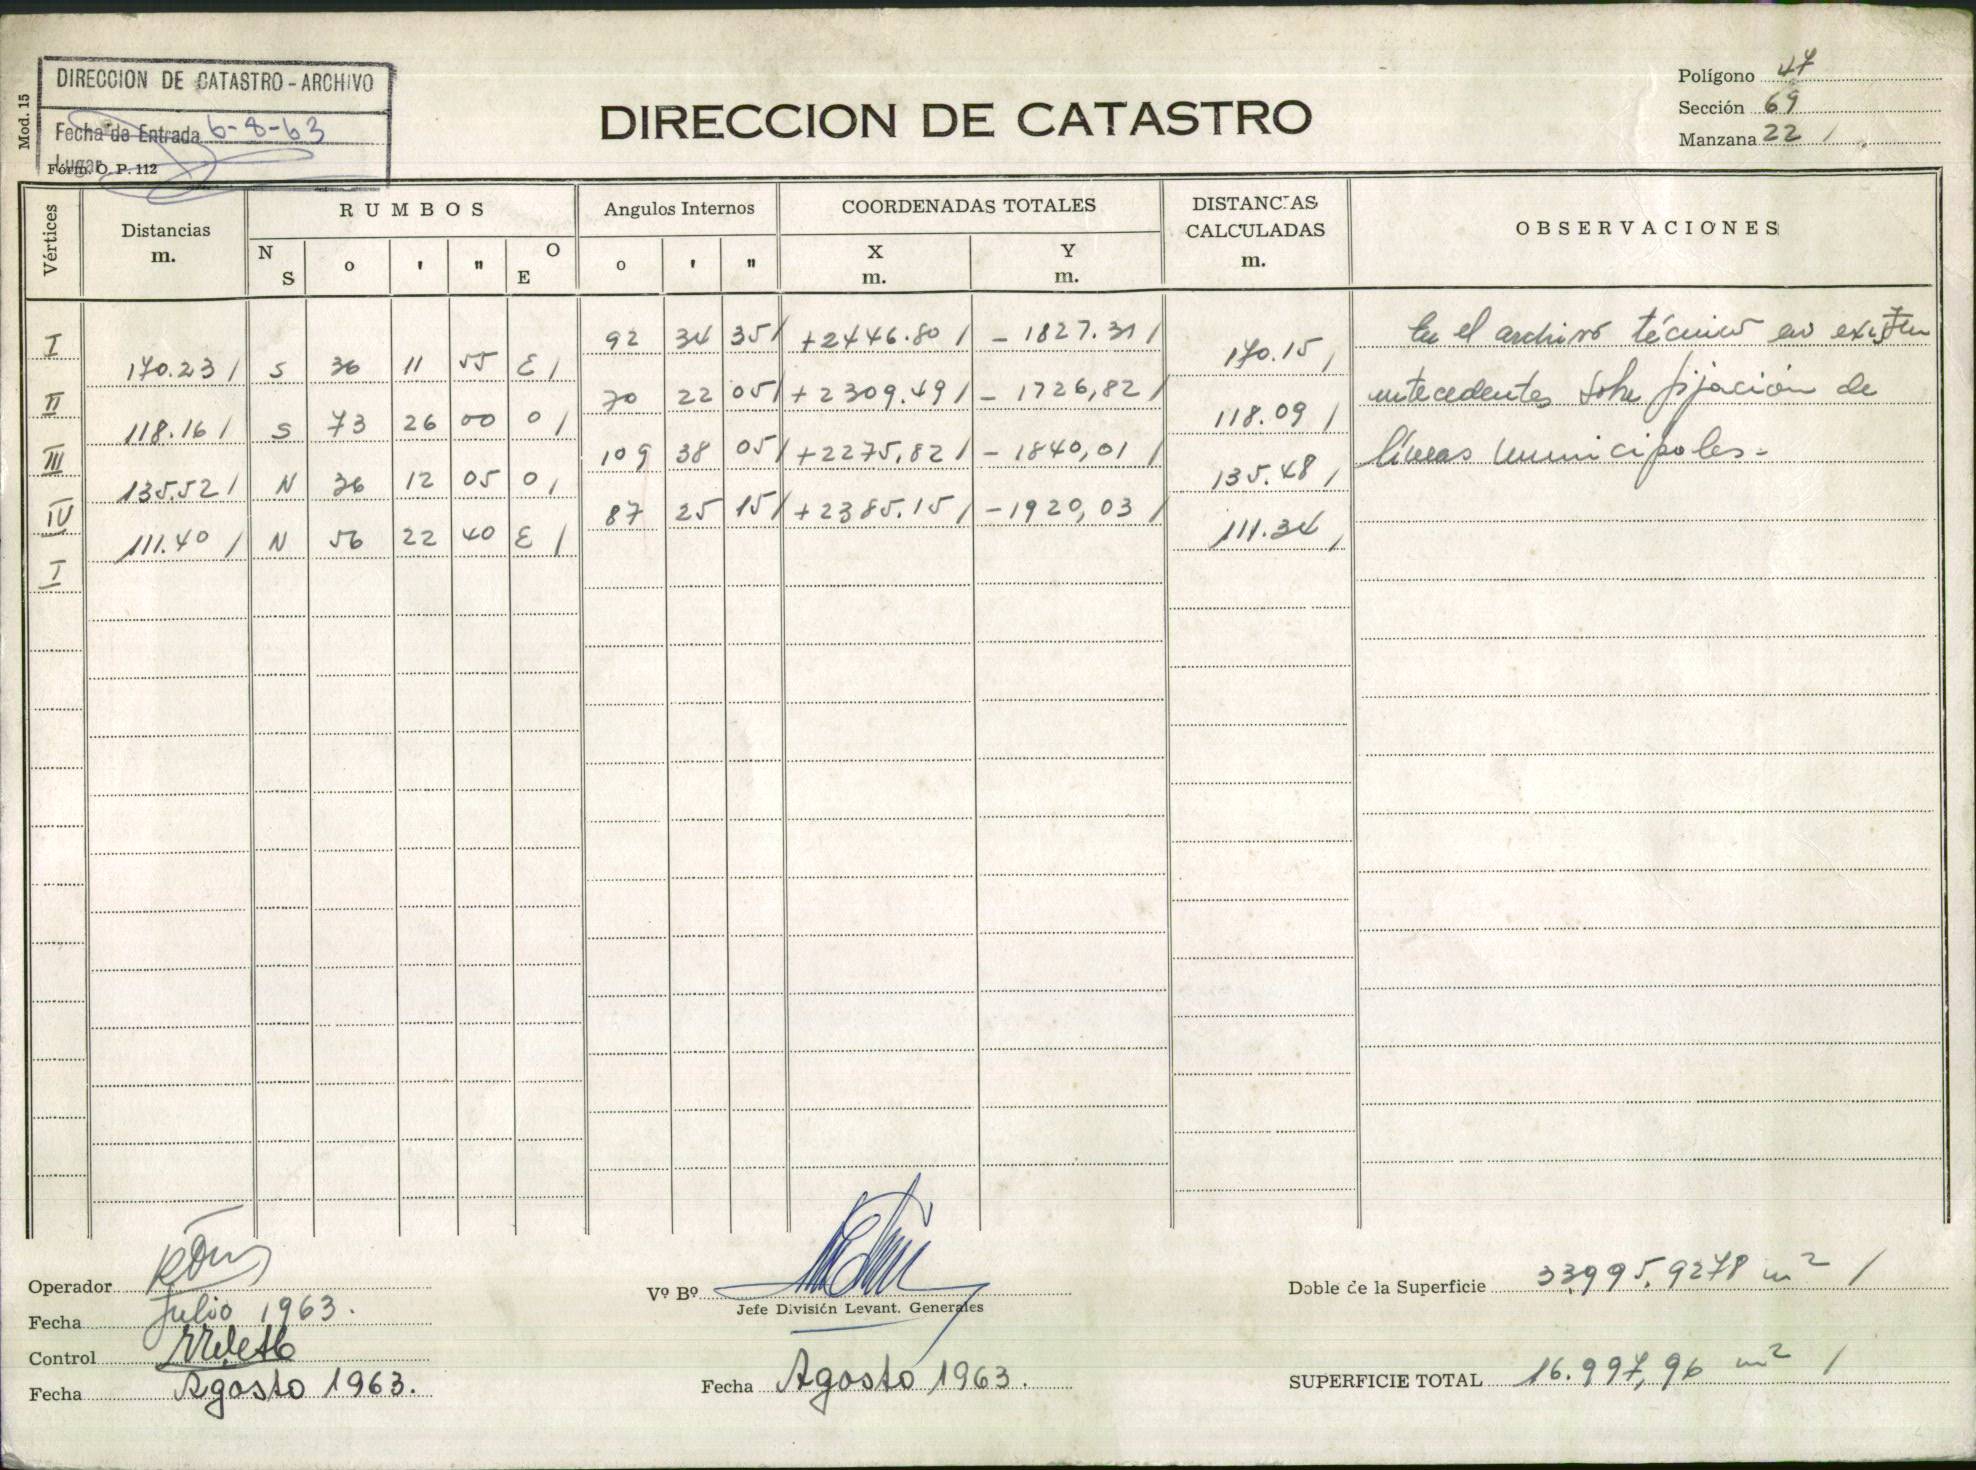 DIRECCION DE CATASTRO - ARCHIVO
Fecha de Entrada 6-8-63
Lugar
Mod. 15
Form. O. P. 112
DIRECCION DE CATASTRO
Polígono 47
Sección 69
Manzana 22 /
Vértices
Distancias
m.
RUMBOS
N S
o ' "
O E
Angulos Internos
o ' "
COORDENADAS TOTALES
X Y
m. m.
DISTANCIAS
CALCULADAS
m.
OBSERVACIONES
I 92 34 35/ +2446.80 / - 1827.31 /
170.23 / S 36 11 55 E / 170.15 /
II 70 22 05/ +2309.49 / - 1726,82 /
118.16 / S 73 26 00 O / 118.09 /
III 109 38 05/ +2275,82 / - 1840,01 /
135.52 / N 36 12 05 O / 135.48 /
IV 87 25 15/ +2385.15 / -1920,03 /
111.40 / N 56 22 40 E / 111.34 /
I
En el archivo técnico no existen
antecedentes sobre fijación de
líneas municipales.-
Operador
Fecha Julio 1963.
Control
Fecha Agosto 1963.
Vº Bº
Jefe División Levant. Generales
Fecha Agosto 1963.
Doble de la Superficie 33,995,9278 m2 /
SUPERFICIE TOTAL 16.997,96 m2 /